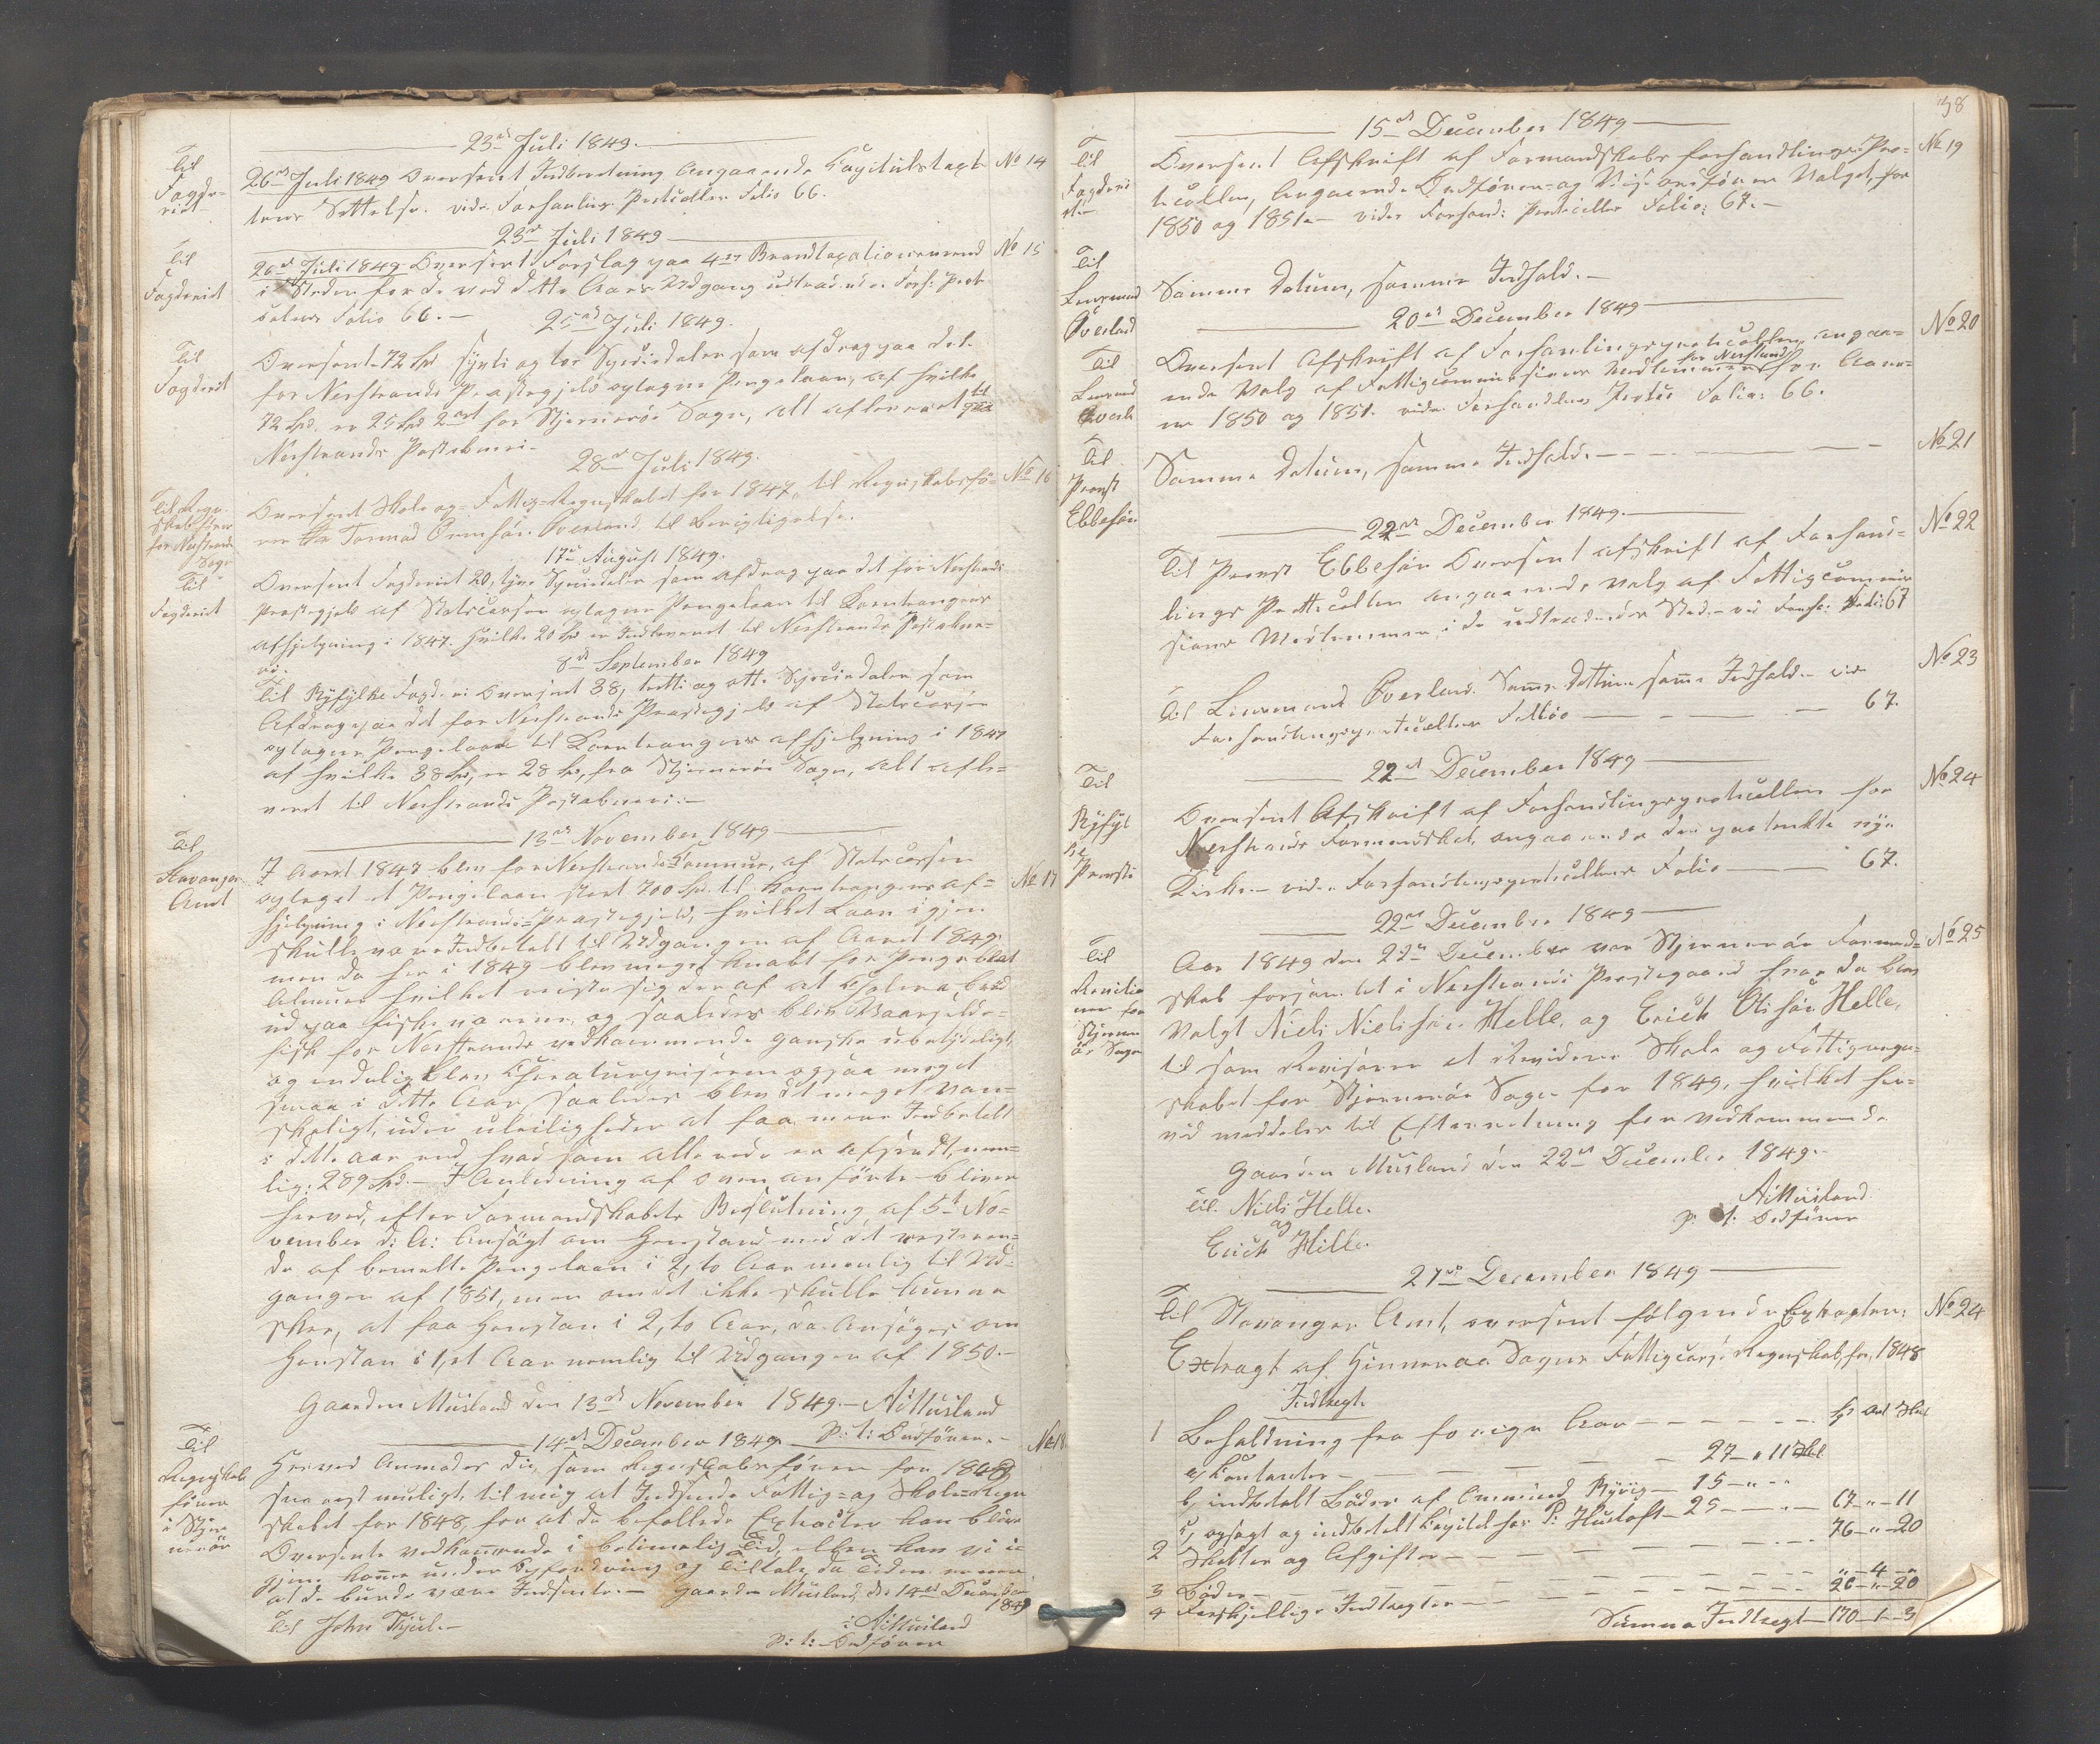 23de Juli 1849.
Til
Fogde-
riet
26de Juli 1849 Oversent Indberetning Angaaende Capitulstaxt No 14
tens Settelse. vide Forhanlings Protocollen Folio 66.
23de Juli 1849
Til
Fogderiet
26de Juli 1849 Oversent Forslag paa 4re Brandtaxationsmænd No 15
i Steden for de ved dette Aars Udgang udtrædende Forh: Prot
colens Folio 66.—
25de Juli 1849.
Til
Fogderiet
Oversent 72 Spd sytti og toe Speciedaler som afdrag paa det
for Nerstrands Præstegjeld optagne Pengelaan, af hvilke
72 Spd. er 25 Spd 2 ort for Stjernerøe Sogn, alt afleveret til
Nerstrands Postabneri.
28de Juli 1849.
Til Regn-
skabsfører
for Nerstrands
Sogn
Oversent Skole og Fattig-Regnskabet for 1847, til Regnskabsfø- No 16
rer Hr Tormod Ormsön Øverland til Berigtigelse.
17de August 1849.
Til
Fogderiet
Oversent Fogderiet 20, tyve Speciedaler som afdrag paa det for Nerstrands
Præstegjeld af Statscassen optagne Pengelaan til Korntrangens
afhjelpning i 1847. hvilke 20 Spd er Indleveret til Nerstrands Postabne-
ri.
8de September 1849
Til Ryfylke Fogderi Oversent 38, tretti og otte Speciedaler som
Afdrag paa det for Nerstrands Præstegjeld af Statscassen
optagne Pengelaan til Korntrangens afhjelpning i 1847
af hvilke 38 Spd, er 28 Spd, fra Stjernerøe Sogn, alt afle-
veret til Nerstrands Postabneri.—
13de November 1849
Til
Stavanger
Amt
I Aaret 1847 blev for Nerstrands Commune, af Statscassen
optaget et Pengelaan stort 700 Spd. til Korntrangens af- No 17
hjelpning i Nerstrands-Præstegjeld, hvilket Laan igjen
skulle være Indbetalt til Udgangen af Aaret 1849.
men da her i 1849 blev meget knabt for Penge blat
Almuen hvilket reiste sig der af at Cholera brød
ud paa fiskeværerne, og saaledes blev Vaarsilde-
fisk for Nerstrands vedkommende ganske ubetydeligt,
og endelig blev Chreaturprisserne ogsaa meget
smaa i dette Aar saaledes blev det meget van-
skeligt, uden uleiligheder at faa mere Indbetalt
i dette aar end hvad som allerede er afsendt, nem-
lig: 289 Spd.— I Anledning af ovenanførte bliver
herved, efter Formandskabets Beslutning af 5te No-
vember d: A: Ansøgt om Henstand med det resteren-
de af bemelte Pengelaan i 2, to Aar nemlig til Ud-
gangen af 1851, men om det ikke skulle kunne
skee, at faa Henstan i 2, to Aar, da Ansøges om
Henstan i 1, et Aar nemlig til Udgangen af 1850.—
Gaarden Musland den 13de November 1849.— AMusland
p: t: Ordfører.—
14de December 1849
Til
Regnskabs
fører
i Stjer
nerøe
Herved Anmodes Die, som Regnskabsfører for 1848 No 18
snarest muligt, til mig at Indsende Fattig- og Skole-Regn
skabet for 1848, for at de befallede Extracter kan blive
Oversente vedkommende i betimelig Tid, ellers kan vi i-
gjen komme under Befordring og Tiltale, da Tiden er nær
at de burde være Indsente.— Gaarden Musland de 14de December
1849
Til John Tjul.—
AMusland
p: t:— Ordfører
38
15de December 1849
Til
Fogderi
et—
Oversent Afskrift af Formandskabs forhandlings-Pro- No 19
tocollen, Angaaende Ordfører- og Viseordfører Valget, for
1850 og 1851.— vides Forhand: Protocollen Folio: 67.—
Til
Lensmand
Øverland
Samme Datum, samme Indhold.—
20de December 1849
Til
Lensmand
Øverla
Oversent Afskrift af Forhanlingsprotocollen, angaa- No 20
ende Valg af Fattigcommissions Medlemmer for Nerstrand for Aare-
ne 1850 og 1851. vide Forhandlings Protoc Folio: 66.
Til
Provst
Ebbesön
Samme Datum, samme Indhold.— No 21
22de December 1849.
Til Provst Ebbesön Oversent afskrift af Forhand- No 22
lings Protocollen angaaende valg af Fattigcommis
sions Medlemmer, i de udtrædendes Sted.— vid Forh: Folio: 67
Til Lensmand Øverland. Samme Dattum samme Indhold.— vide No 23
Forhandlingsprotocollens Follio — 67.
22de December 1849
Til
Ryfyl
ke
Provsti
Oversent Afskrift af Forhandlingsprotocollen for No 24
Nerstrands Formandskab, angaaende den paatenkte nye
Kirke.— vide Forhandlingsprotocollens Folio — 67.
22de December 1849
Til
Revisio
ner for
Stjerne
røe Sogn
Aar 1849 den 22de December var Stjernerøe Formand- No 25
skab forsamlet i Nerstrands Præstegaard hvor da blev
Valgt Niels Nielsön Helle, og Erich Olisön Helle,
til som Revisorer at Revidere Skole og Fattigregn-
skabet for Stjernerøe Sogn for 1849, hvilket her-
ved meddeles til Efterretning for vedkommende
Gaarden Musland den 22de December 1849.—
Til Niels Helle.
og
Erich Helle.
AMusland
p: t: Ordfører
27de December 1849
Til Stavanger Amt, oversent følgende Extracter: No 24
Extragt af Hinneraa Sogns Fattigcasse Regnskab for 1848
Indtægt Sp Ort Skil
1 Beholdning fra forrige Aar
a, Contanter — 27 " 11 Skil
b, indbetalt Bøder af Ommund Byrig — 15 — " —
c, opsagt og indbetalt Capital hos P: Hustoft — 25 — 67 — " — 11
2 Skatter og Afgifter — 76 — " — 20
3 Bøder — " — 4 — "
4 Forskjellige Indtægter — 26 — " — 20
Summa Indtægt — 170 — 1 — 3